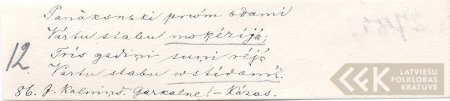 Panāksnski prūom ēdami
Vārtu stabu mokērijā;
12
Trīs gadiņi suņi rēja
Vārtu stabu vstīdami.
86. J. Kalniņš. Garkalne! - Rāzas.
LATVIEŠU
FOLKLORAS
KRĀTUVE